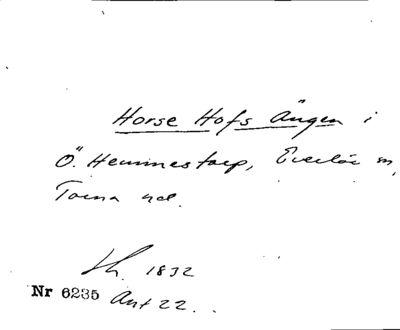 Horse Hofs Ängen i
Ö. Hemmestorp, Everlöv sn,
Torna hd.
1832
Nr 6235 Ant 22.